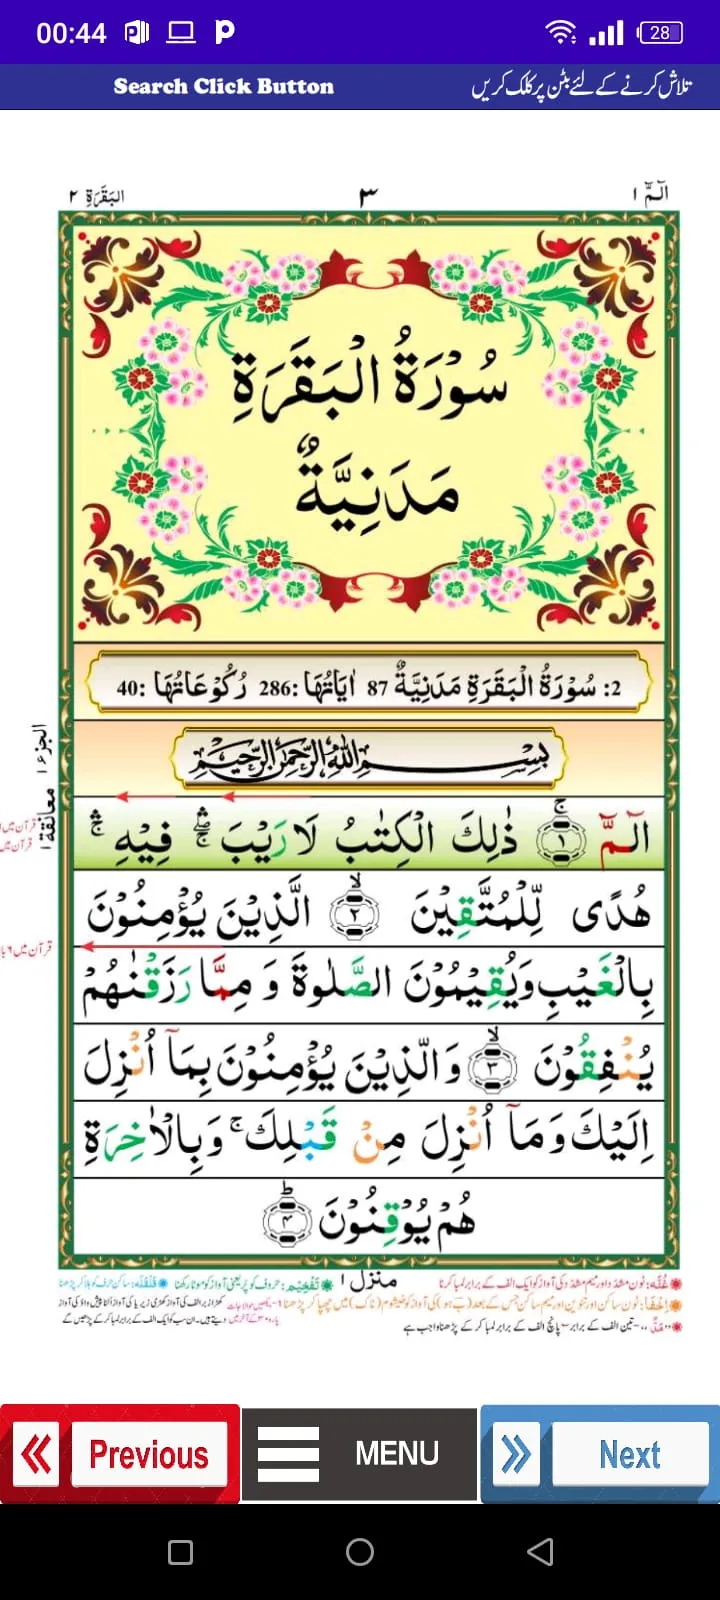 00:44
28
Search Click Button تلاش کرنے کے لئے بٹن پر کلک کریں
الٓمّٓ ۱ ۳ البَقَرَة ۲
سُوْرَةُ الْبَقَرَةِ
مَدَنِيَّةٌ
2: سُوْرَةُ الْبَقَرَةِ مَدَنِيَّةٌ 87 اٰيَاتُهَا: 286 رُكُوْعَاتُهَا: 40
بِسْمِ اللهِ الرَّحْمٰنِ الرَّحِيْمِ
الجزء ۱
معانقة ۱
الٓمّٓ ۚ﴿۱﴾ ذٰلِكَ الْكِتٰبُ لَا رَيْبَ ۛۖ فِيْهِ ۛۚ
هُدًى لِّلْمُتَّقِيْنَ ۙ﴿۲﴾ الَّذِيْنَ يُؤْمِنُوْنَ
بِالْغَيْبِ وَيُقِيْمُوْنَ الصَّلٰوةَ وَ مِمَّا رَزَقْنٰهُمْ
يُنْفِقُوْنَ ۙ﴿۳﴾ وَالَّذِيْنَ يُؤْمِنُوْنَ بِمَآ اُنْزِلَ
اِلَيْكَ وَمَآ اُنْزِلَ مِنْ قَبْلِكَ ۚ وَبِالْاٰخِرَةِ
هُمْ يُوْقِنُوْنَ ؕ﴿۴﴾
منزل ۱
Previous
MENU
Next